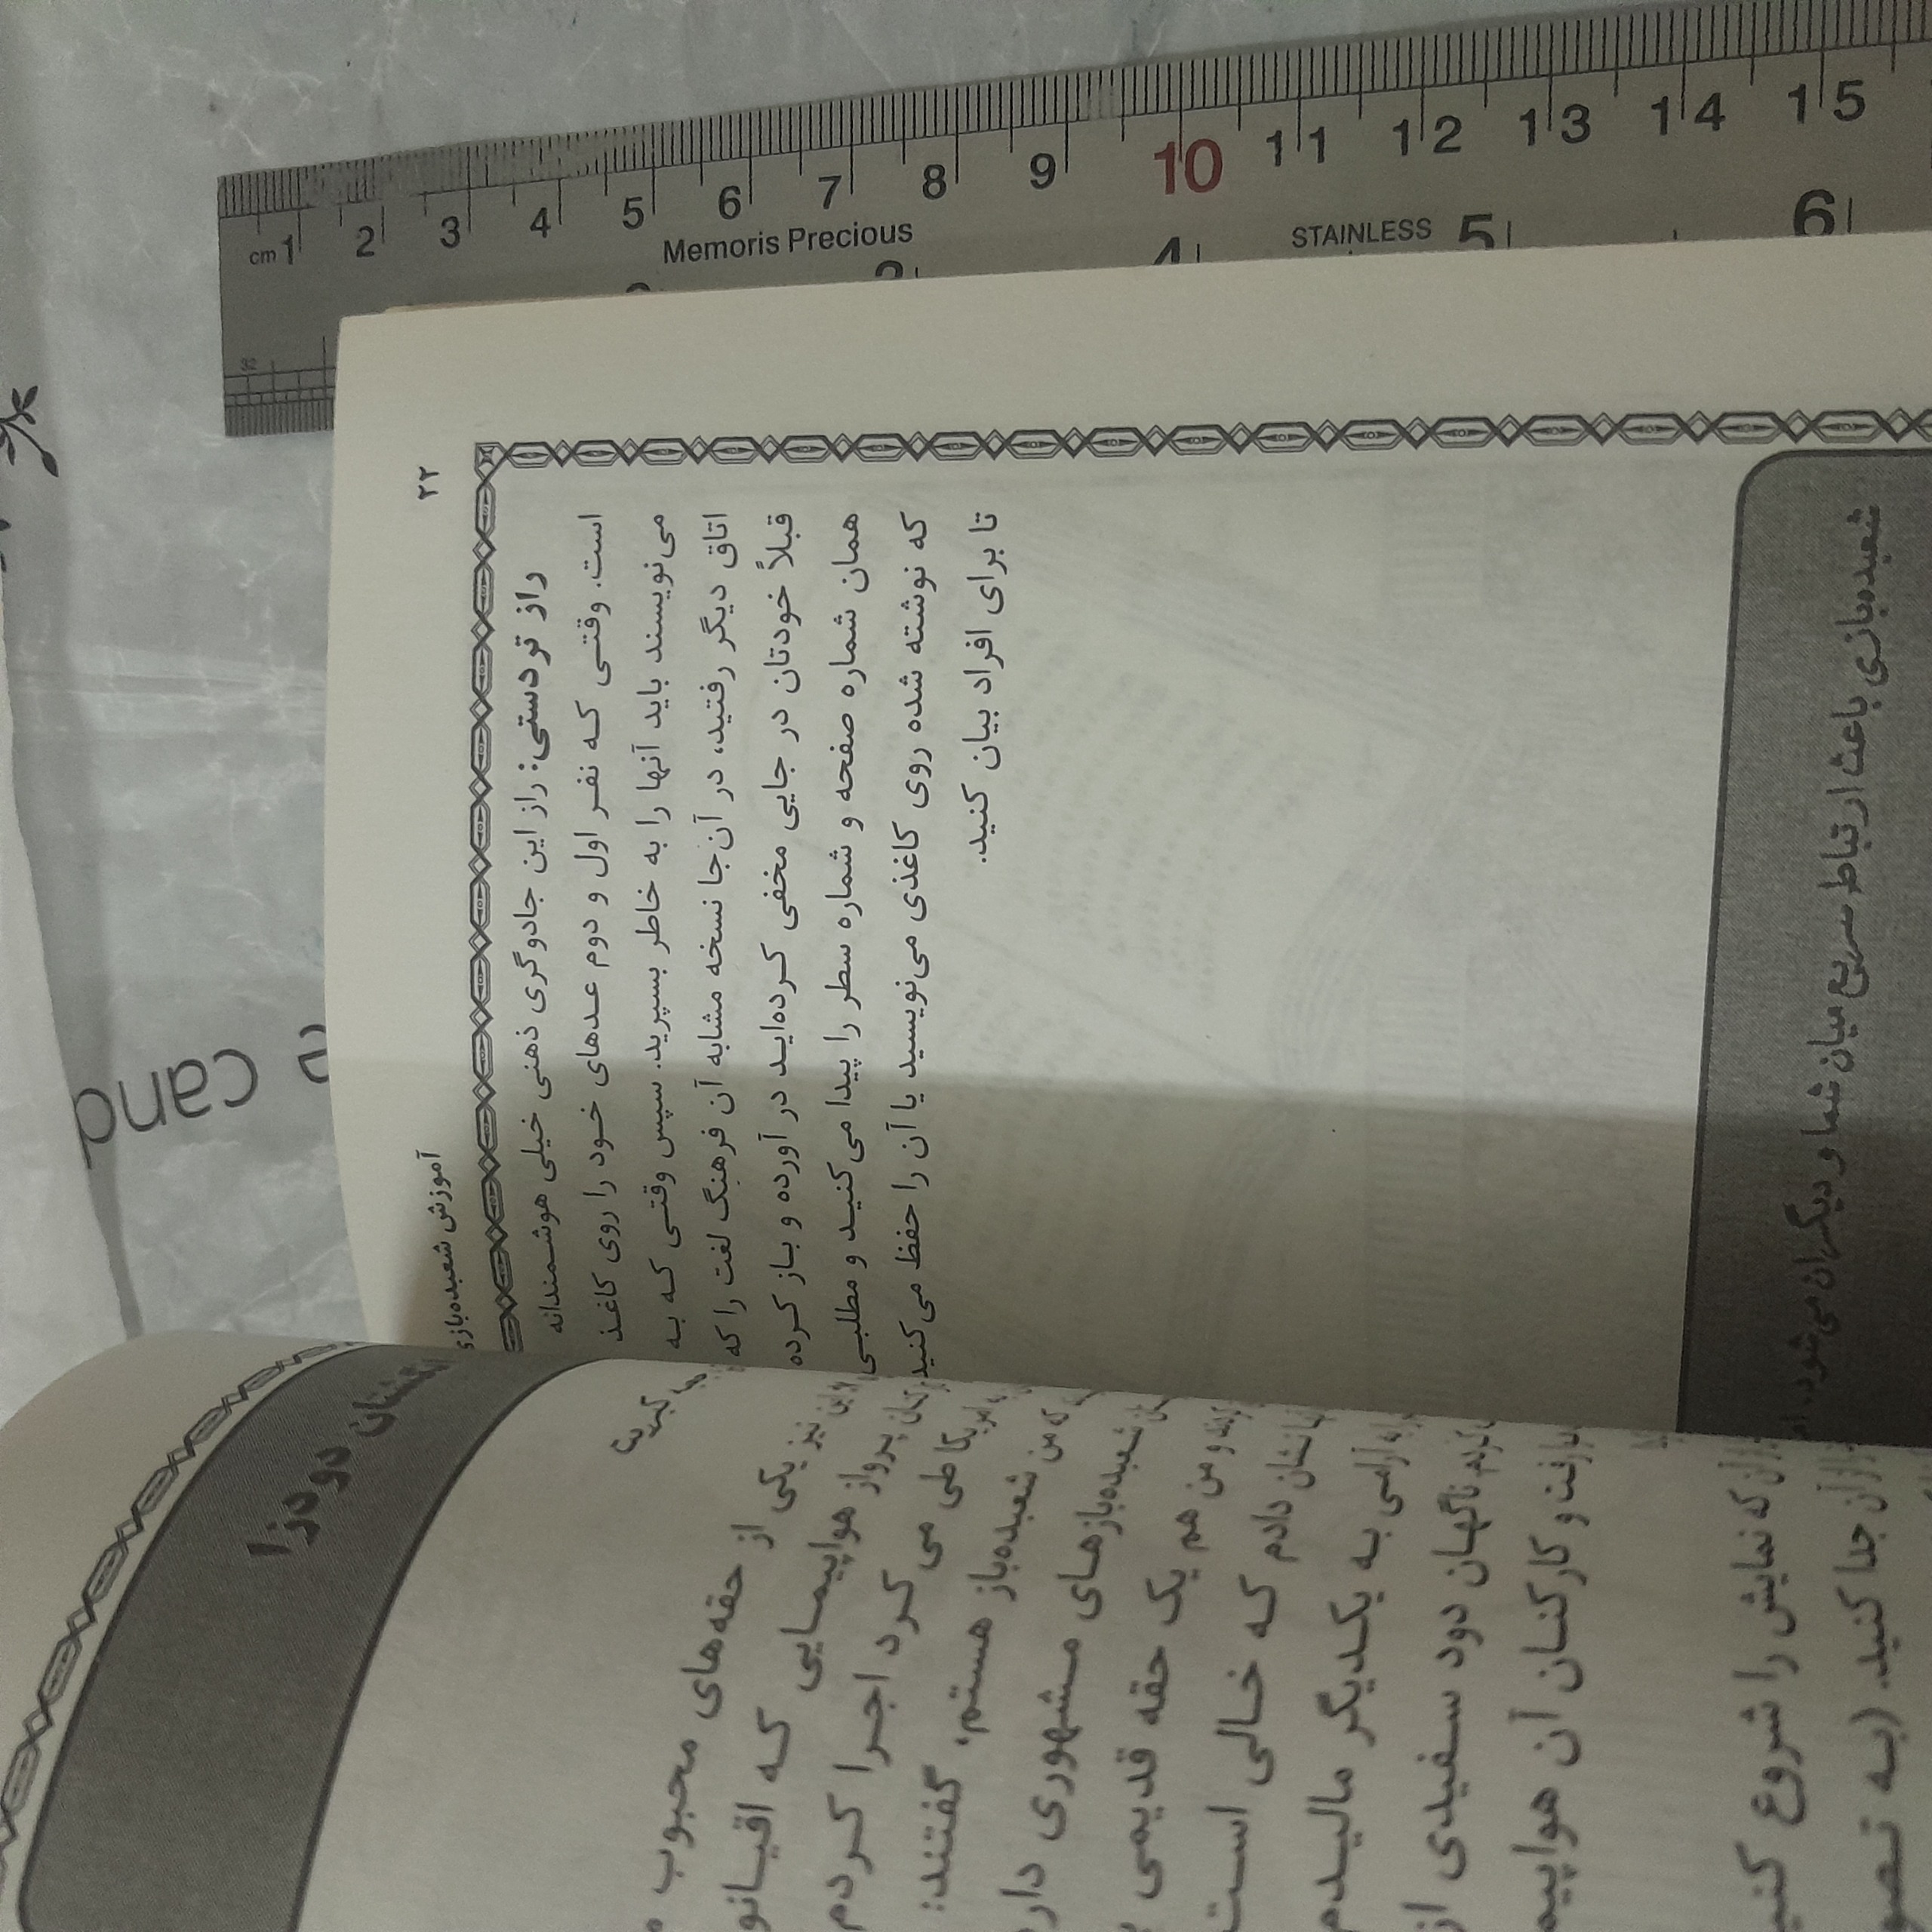 cm 1 2 3 4 5 6 7 8 9 10 11 12 13 14 15
Memoris Precious
STAINLESS
4 5 6
cand
۲۲
آموزش شعبده‌بازی
راز تردستی: راز این جادوگری ذهنی خیلی هوشمندانه
است. وقتی که نفر اول و دوم عددهای خود را روی کاغذ
می‌نویسند باید آنها را به خاطر بسپرید. سپس وقتی که به
اتاق دیگر رفتید، در آن‌جا نسخه مشابه آن فرهنگ لغت را که
قبلاً خودتان در جایی مخفی کرده‌اید در آورده و باز کرده
همان شماره صفحه و شماره سطر را پیدا می‌کنید و مطلبی
که نوشته شده روی کاغذی می‌نویسید یا آن را حفظ می‌کنید
تا برای افراد بیان کنید.
شعبده‌بازی باعث ارتباط سریع میان شما و دیگران می‌شود.
انگشتان دودزا
کبریت
نیز یکی از حقه‌های محبوب
پرواز هواپیمایی که اقیانو
طی می کرد اجرا کردم
که من شعبده‌باز هستم، گفتند:
شعبده‌بازهای مشهوری دار
و من هم یک حقه قدیمی
نشان دادم که خالی است
آرامی به یکدیگر مالیدم
ناگهان دود سفیدی از
و کارکنان آن هواپیم
که نمایش را شروع کنی
آن جدا کنید. (به تصو